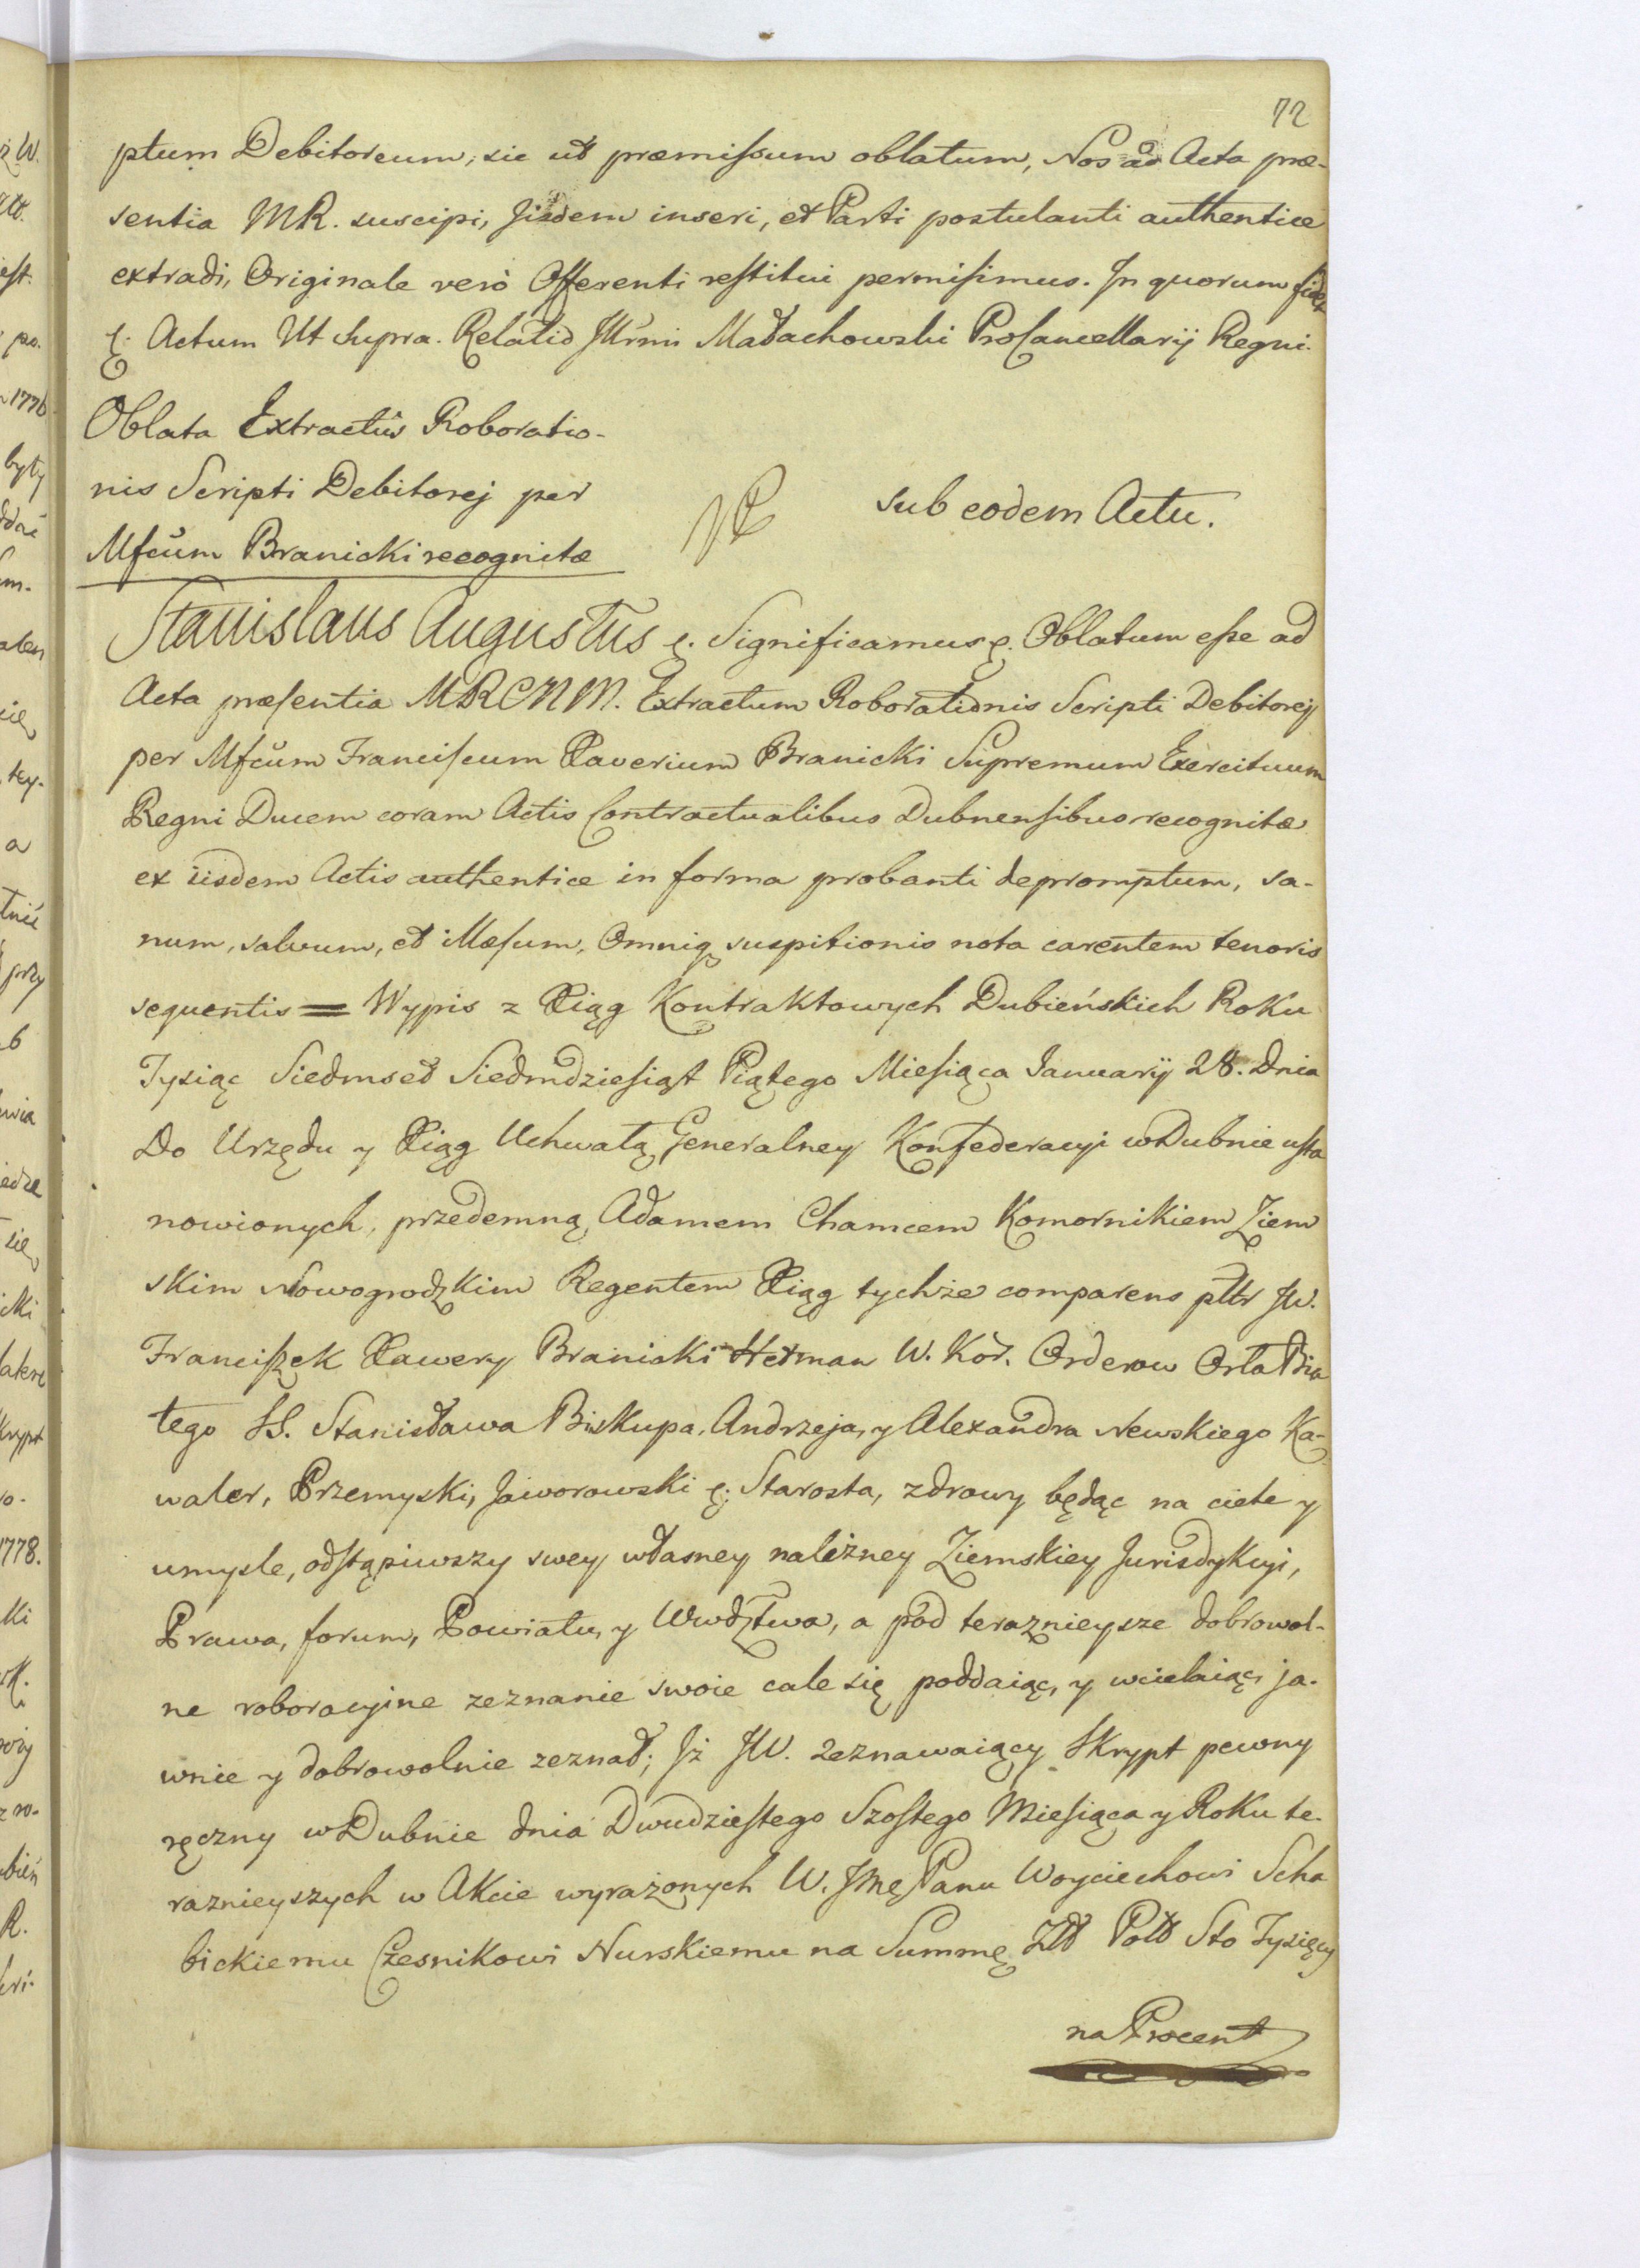 72
ptum Debitoreum, sic ut præmissum oblatum, Nos ad Acta præ-
sentia MR. suscipi, Jisdem inseri, et Parti postulanti authentice
extradi, Originale verò Offerenti restitui permisimus. In quorum fidē
&. Actum Ut supra. Relatio Jllrmi Małachowski ProCancellarij Regni.
Oblata Extractûs Roboratio-
nis Scripti Debitorej per
Mfcŭm Branicki recognitæ
sub eodem Actu.
Stanislaus Augustus &. Significamus &. Oblatum esse ad
Acta præsentia MRCNM. Extractum Roborationis Scripti Debitorej
per Mfcŭm Franciscum Xaverium Branicki Supremum Exercituum
Regni Ducem coram Actis Contractualibus Dubnensibus recognitæ
ex iisdem Actis authentice in forma probanti depromptum, sa-
num, salvum, et illæsum, Omniq; suspitionis nota carentem tenoris
sequentis = Wypis z Xiąg Kontraktowych Dubieńskich Roku
Tysiąc Siedmset Siedmdziesiąt Piątego Miesiąca Januarij 28. Dnia
Do Urzędu y Xiąg Uchwałą Generalney Konfederacyi w Dubnie usta
nowionych, przedemną Adamem Chamcem Komornikiem Ziem
skim Nowogrodzkim Regentem Xiąg tychże comparens pltr JW.
Franciszek Xawery Branicki Hetman W. Kor. Orderow Orła Bia
łego SS. Stanisława Biskupa, Andrzeja, y Alexandra Newskiego Ka-
waler, Przemyski, Jaworowski &. Starosta, zdrowy będąc na ciele y
umysle, odstąpiwszy swey własney należney Ziemskiey Jurisdykcyi,
Prawa, forum, Powiatu, y Wwdztwa, a pod teraznieysze dobrowol-
ne roboracyine zeznanie swoie cale się poddaiąc, y wcielaiąc, ja-
wnie y dobrowolnie zeznał; Jż JW. zeznawaiący Skrypt pewny
ręczny w Dubnie dnia Dwudziestego Szostego Miesiąca y Roku te-
raznieyszych w Akcie wyrażonych W. JMć Panu Woyciechowi Scha
bickiemu Czesnikowi Nurskiemu na Summę Złł Poll Sto Tysięcy
na Procent